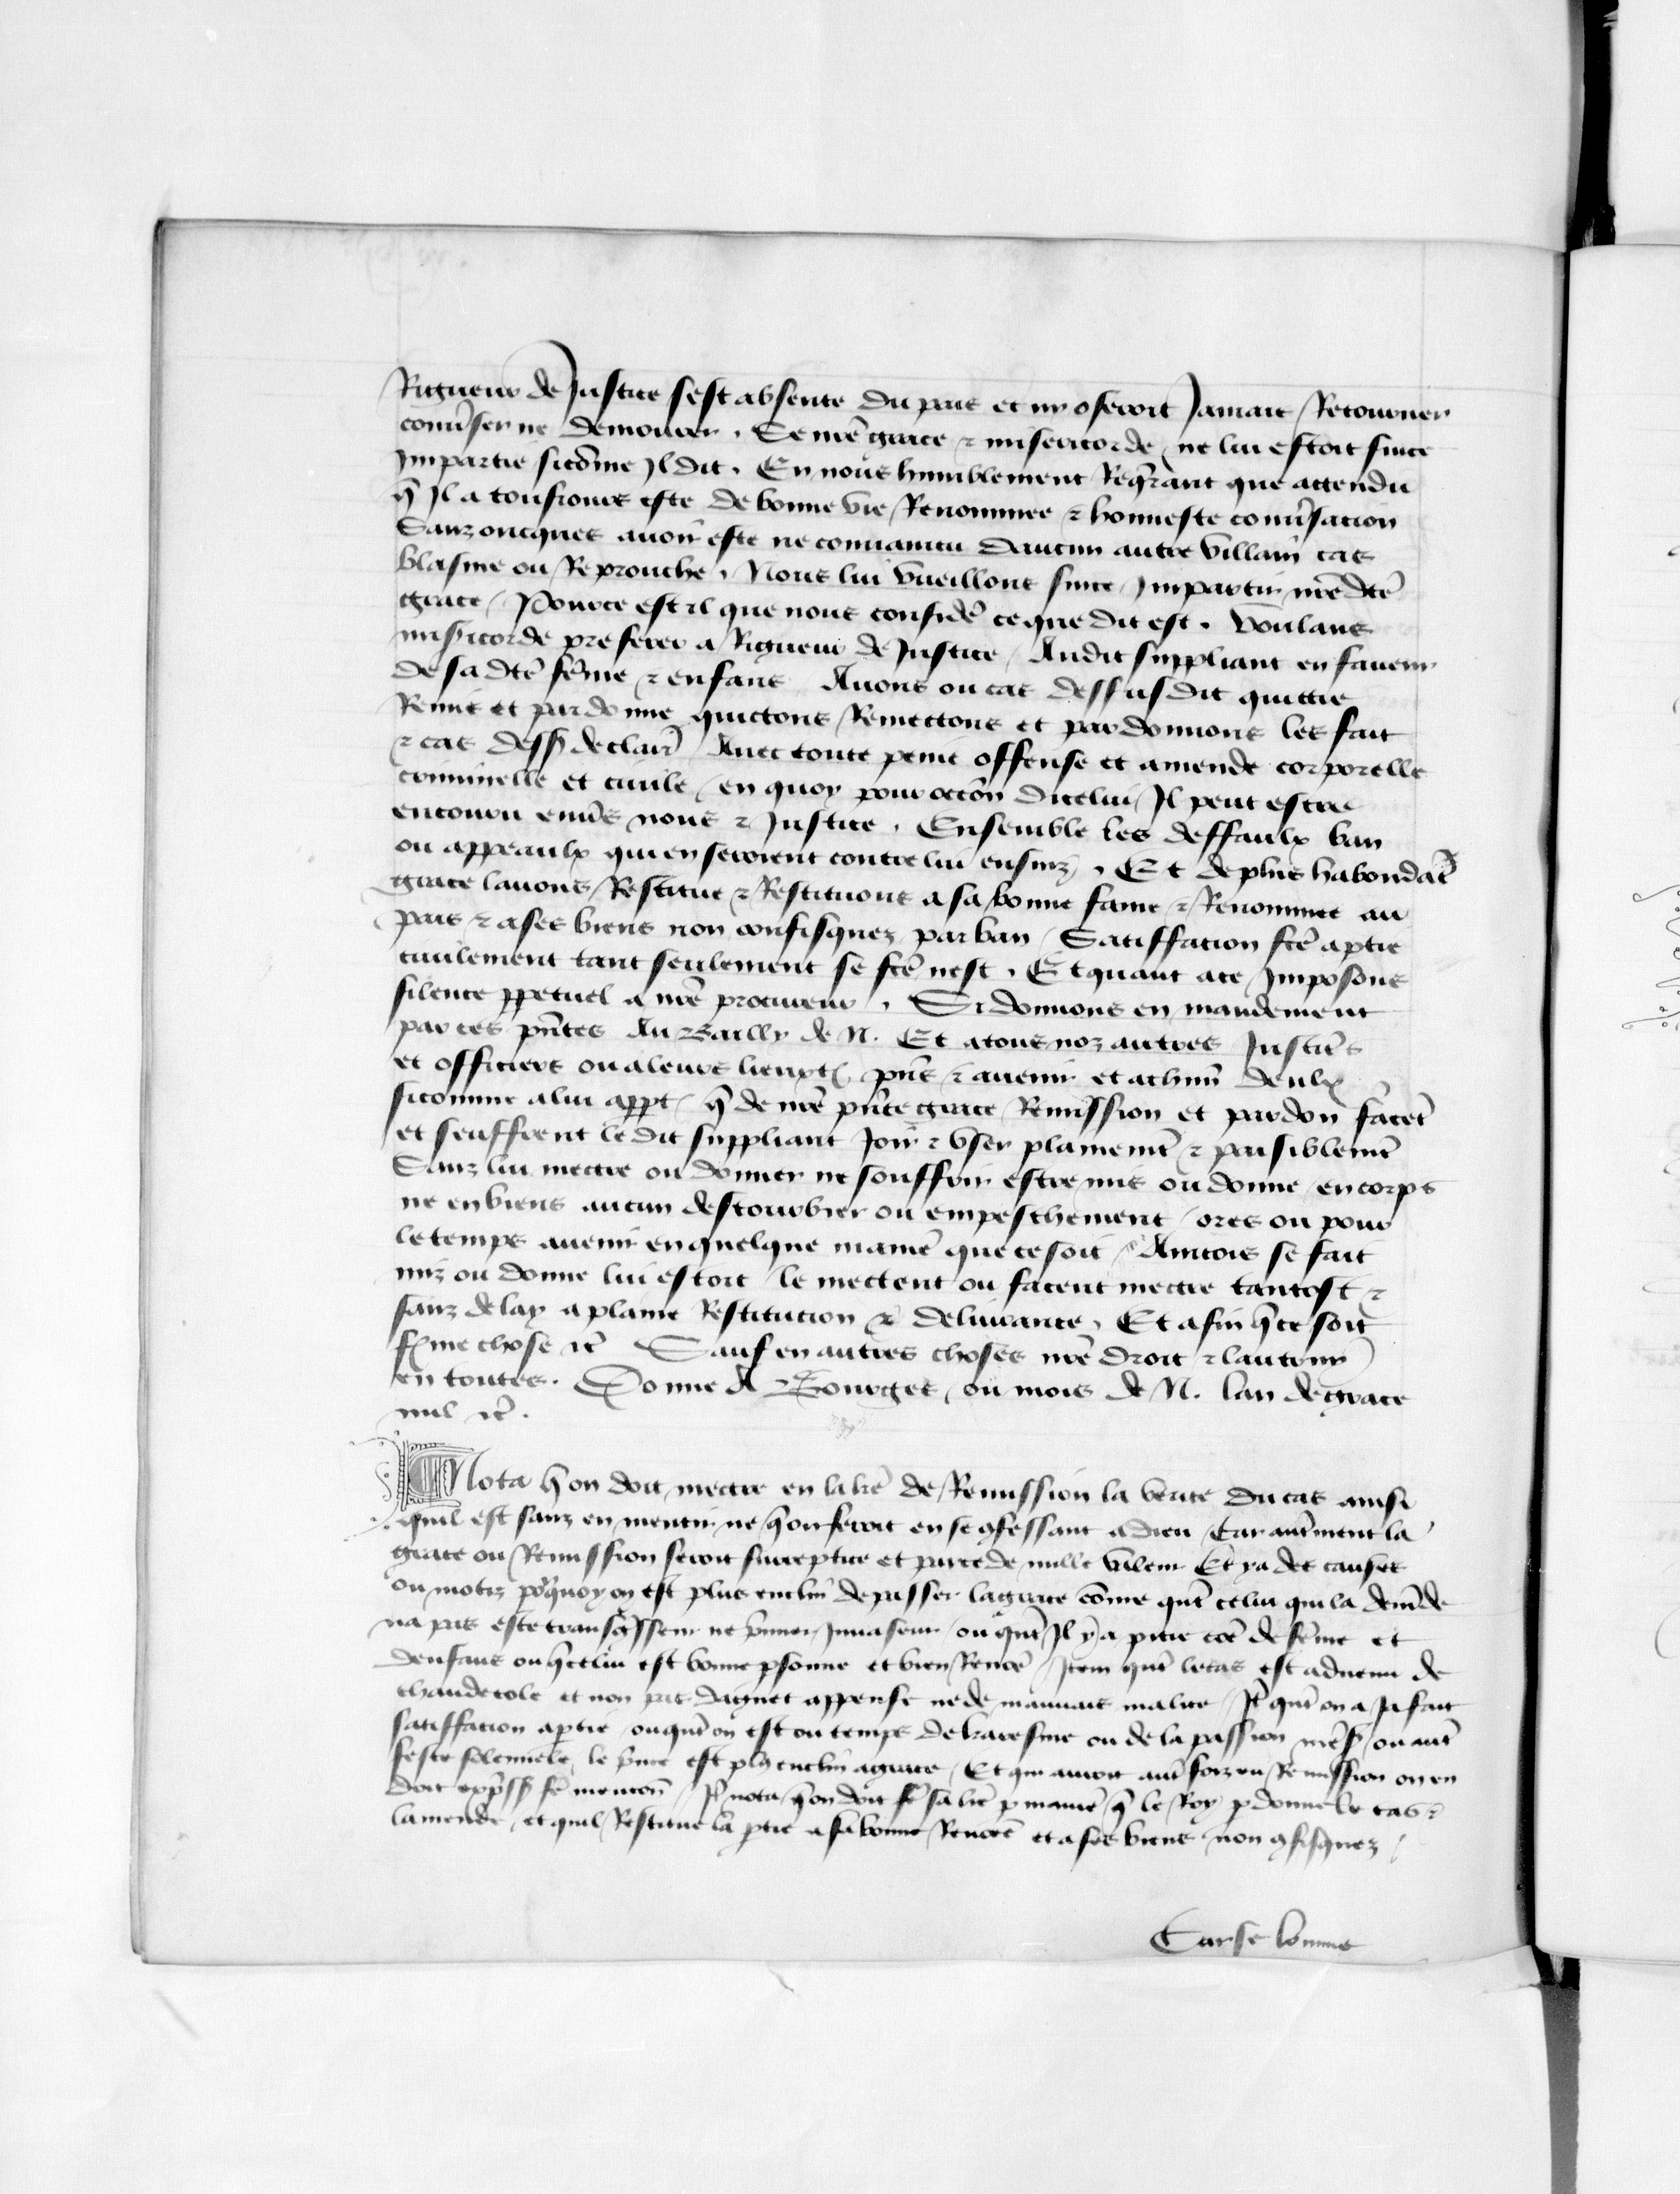 Rigueur de Justice sest absente du pais et ny oseroit Jamais Retourner
conv̄ser ne demourer . Se nr̄e grace ⁊ misericorde ne lui estoit sur ce
Impartie sicōme Il dit . En nous humblement Req̄rant que attendu
q̄ Il a tousiours este de bonne vie Renommee ⁊ honneste conv̄sacion
Sanz oncques auoir este ne conuaincu daucun autre villain cas
blasme ou Reprouche . Nous lui vueillons sur ce Impartir nr̄e dc̄e
grace / Pource est il que nous considē ce que dit est . Voulans
mis̄icorde preferer a Rigueur de Justice / Audit suppliant en faueur
de sa dc̄e fēme ⁊ enfans Auons ou cas dessusdit quictie
Remis et pardonne quictons Remectons et pardonnons les fait
⁊ cas dess̄ declair̄ / Auec toute peine offense et amende corporelle
criminelle et ciuile / en quoy pour occōn dicelui Il peut estre
encouru enūs nous ⁊ Justice . Ensemble les deffaulx ban
ou appeaulx qui en seroient contre lui ensuiz . Et de plus habondāt
grace lauons Restitue ⁊ Restituons a sa bonne fame ⁊ Renommee au
pais ⁊ a ses biens non confisquez par ban / Satiffacion fc̄e a ptie
ciuilement tant seulement se fc̄e nest . Et quant a ce Imposons
silence ppetuel a nr̄e procureur . Si donnons en mandement
par ces pn̄tes Au Bailly de N. Et a tous noz autres Justic̄s
et officiers ou a leurs lieuxt pn̄s ⁊ auenir et a chm̄ deulx
sicomme a lui appt / q̄ de nr̄e pn̄te grace Remission et pardon facēt
et seuffrent le dit suppliant Joir ⁊ vser plainemt̄ ⁊ paisiblemt̄
Sanz lui mectre ou donner ne souffrir estre mis ou donne / en corps
ne en biens aucun destourbier ou empeschement / ores ou pour
le temps auenir en quelque manīe que ce soit / Aincois se fait
mis ou donne lui estoit / le mectent ou facent mectre tantost ⁊
sanz delay a plaine Restitucion ⁊ deliurance . Et afin q̄ ce soit
fme chose ⁊c̄ Sauf en autres choses nr̄e droit ⁊ lautruy
en toutes . Donne A Bourges ou mois de N. lan de grace
mil ⁊c̄ .
Nota q̄ on doit mectre en la lr̄e de Remission la verite du cas ainsi
quil est sanz en mentir ne q̄ on feroit en se 9fessant a dieu / Car aut̄ment la
grace ou Remission seroit surreptice et par ce de nulle valeur Et ya des causes
ou motiz por̄quoy on est plus enclin de passer la grace cōme qn̄t celui qui la demāde
na pas este transg̃sseur ne p̄mier Inuaseur / ou qn̄t Il y a pitie cōe de fēme et
denfans ou q̄ celui est bonne psonne et bien Renōe / Item qn̄t le cas est aduenu de
chaude cole et non pas daguet appense ne de mauuais malice / It̄ qn̄t on a Ja fait
satiffacion a ptie / ou qn̄t on est ou temps de karesme ou de la passion nr̄es̄ / ou aut̄
feste solennele / le p̄nce est pl9 enclin a grace / Et qui auroit aut̄foiz eu Remission on en
doit exp̄ss̄ fē mencōn / It̄ nota / q̄ on doit fē sa lr̄e p manīe q̄ le Roy pdonne le cas ⁊
lamende / et quil Restitue la ptie a sa bonne Renōee et a ses biens non 9fisquez /
Car se lomme